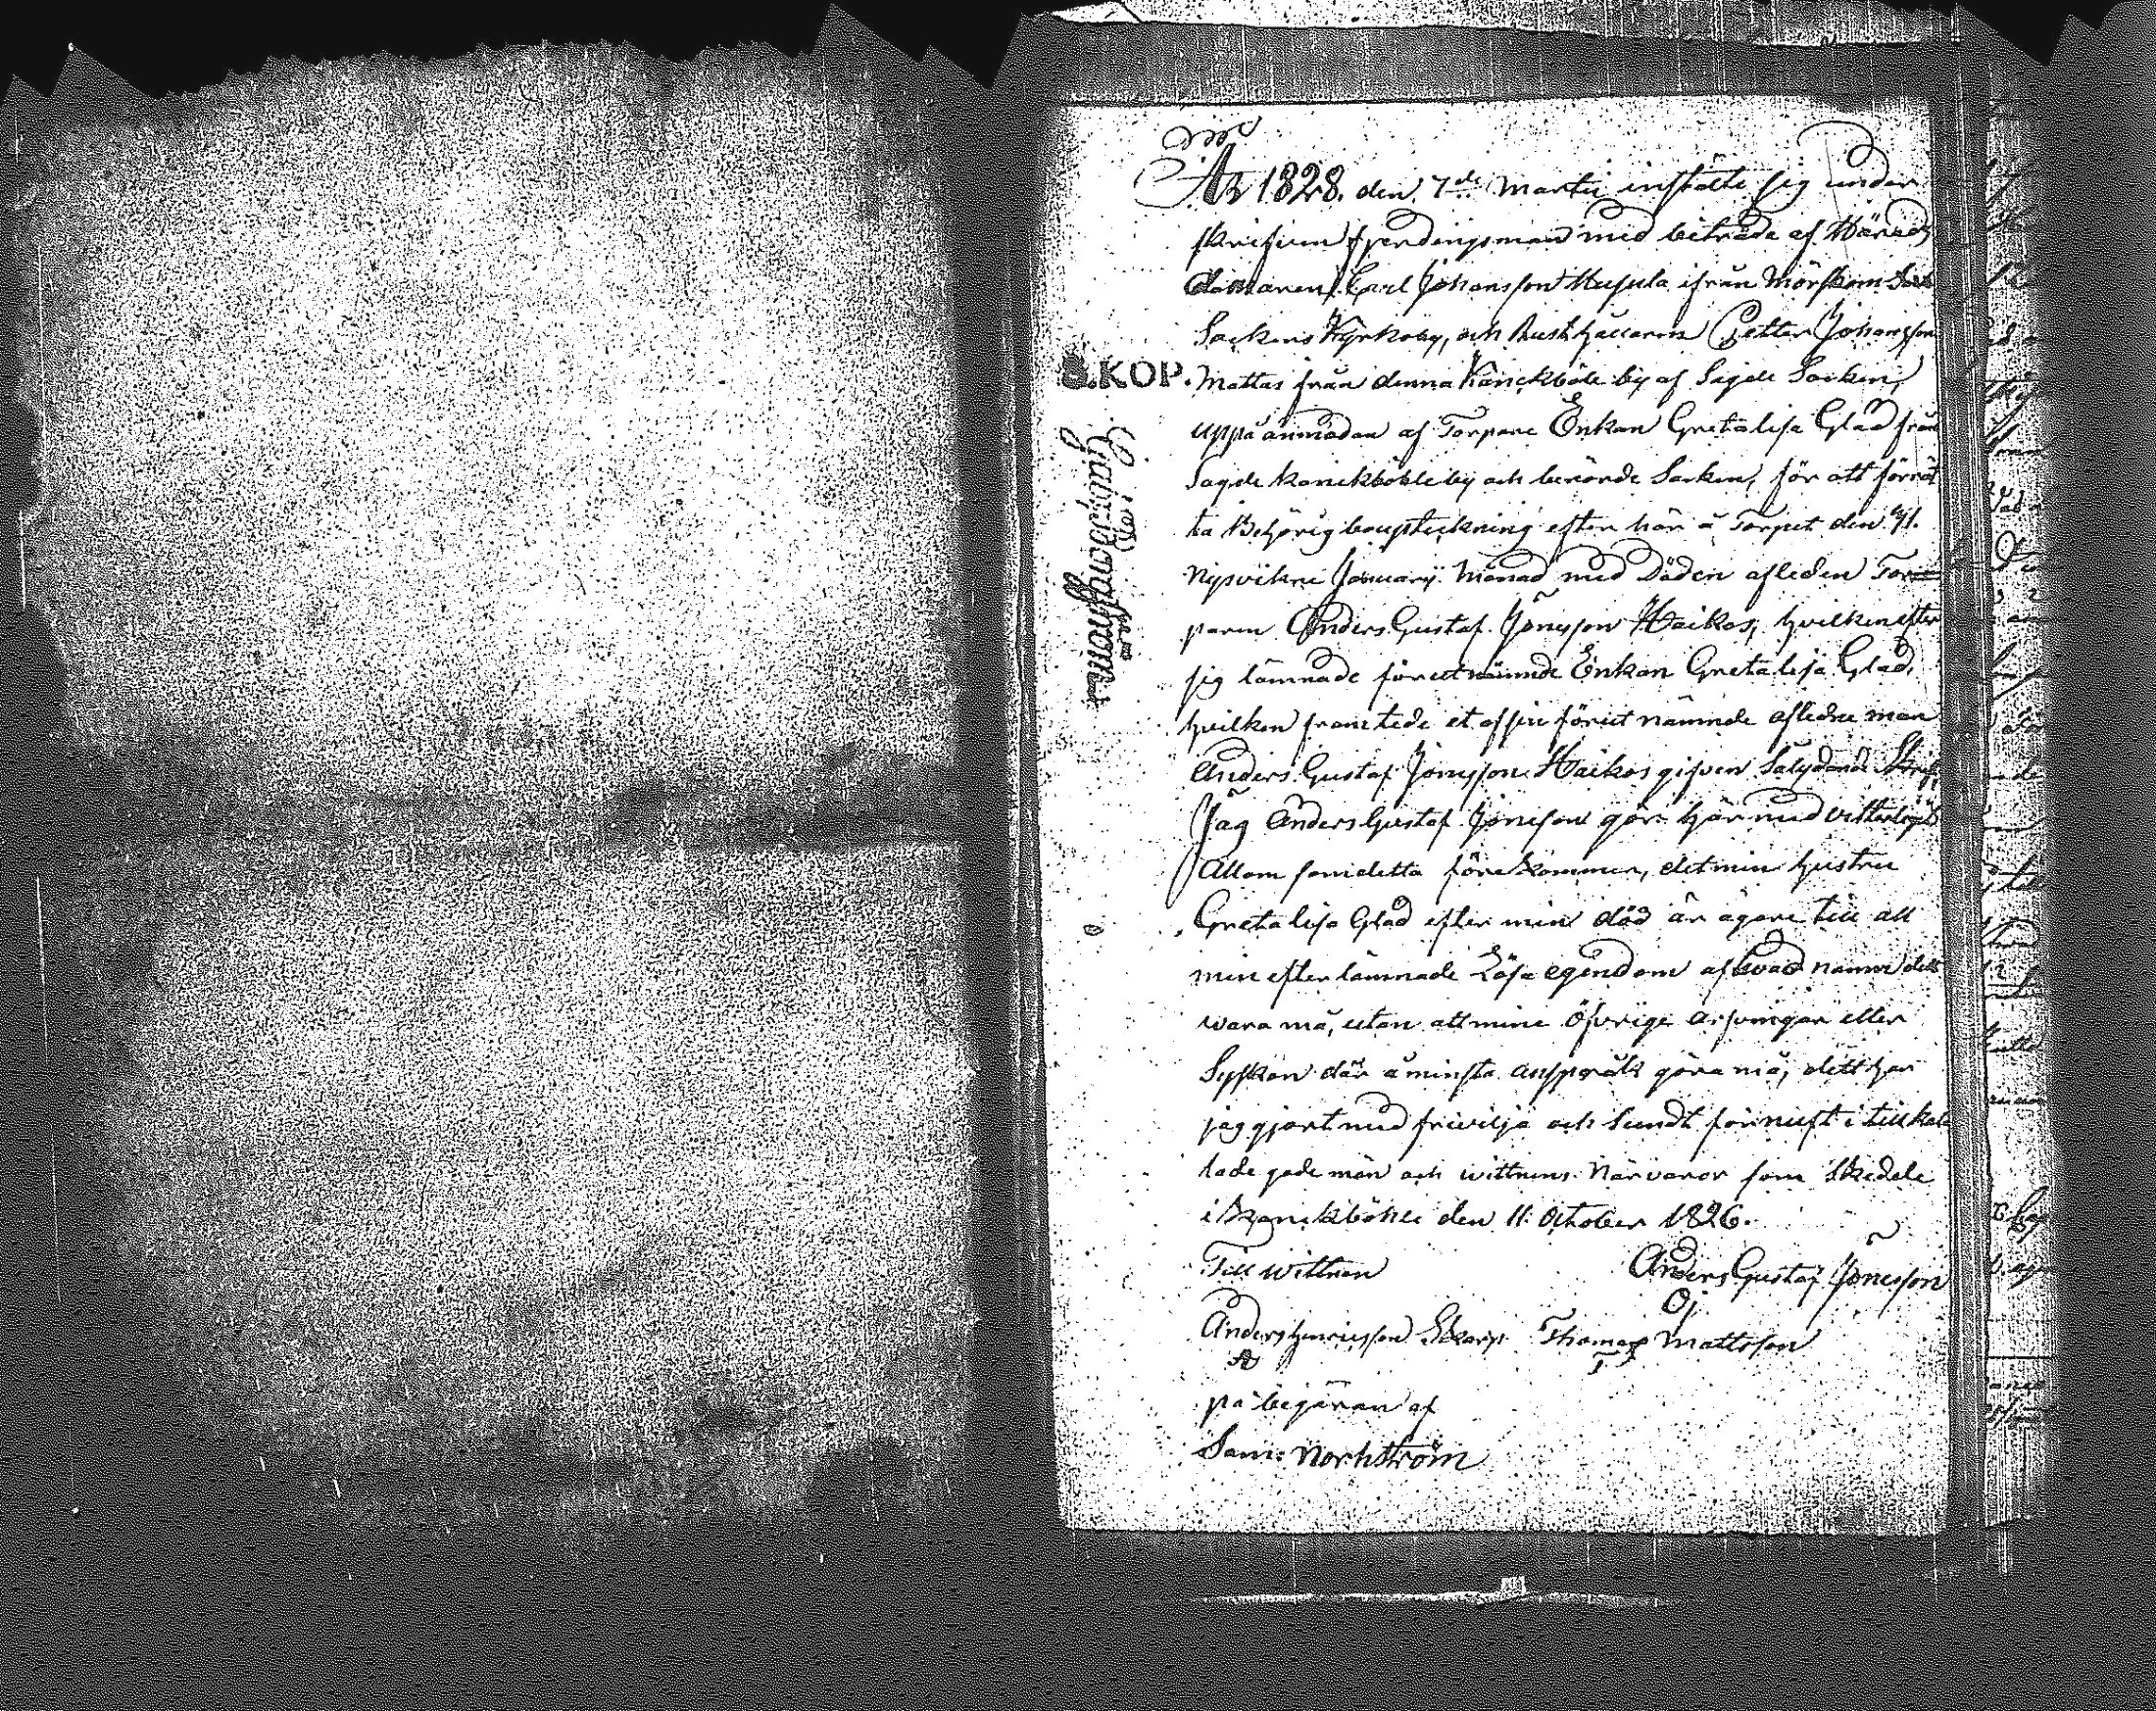 År 1828. den 7de Martii instälte sig under
skrifven fjerdingsman med beträde af Härads
domaren Carl Johansson Husula ifrån Mörskom
Sockens Kyrkoby, och Rusthållaren Petter Johansson
8.KOP. Mattas från denna Kanckböle by af Sagde Socken,
uppå anmodan af Torpare Enkan Greta Lisa Glad från
Sagde Kanckböhle by och berörde Socken, för att förrät
ta Behörig bouptekning efter här å Torpet den
nysvikne January Månad med Döden afleden Tor
paren Anders Gustaf Jönsson Haikas, hvilken efter
sig lämnade förutnämnde Enkan Greta Lisa Glad,
hvilken framtede et af sin förut nämnde afledne man
Anders Gustaf Jönsson Haikos gifven Sålydande Skrift,
Jag Anders Gustaf Jönsson gör härmed vitterligt
Allom som detta förekommer, det min hustru
Greta Lisa Glad efter min död är ägare till all
min efterlämnade Lösa egendom af hvad namn dett
wara må, utan att mine Öfvrige arfvingar eller
Syskon där å minsta anspråk göra må, dett har
jag gjort med fri vilja och Sundt förnuft i tillkal
lade gode män och wittnens Närvaror som Skedde
i Kanckböhle den 11 October 1826.
Till wittnen Anders Gustaf Jönsson
Anders Henricsson Skarp Thomas Mattsson
på begäran af
Sam: Norhström